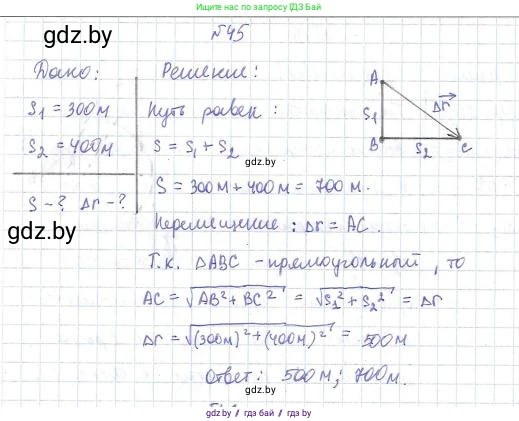 возможно по запросу ГДЗ Бай
gdz.by
№45
Дано:
S₁ = 300м
S₂ = 400м
S - ? Δr - ?
gdz.by
Решение:
Путь равен:
S = S₁ + S₂
gdz.by
S = 300м + 400м = 700м.
Перемещение: Δr = AC.
Т.к. ΔABC - прямоугольный, то
AC = √(AB² + BC²) = √(S₁² + S₂²) = Δr
Δr = √((300м)² + (400м)²) = 500м
Ответ: 500м; 700м.
gdz.by
A
S₁
Δr
B
S₂
C
gdz.by / гдз бай / gdz.by